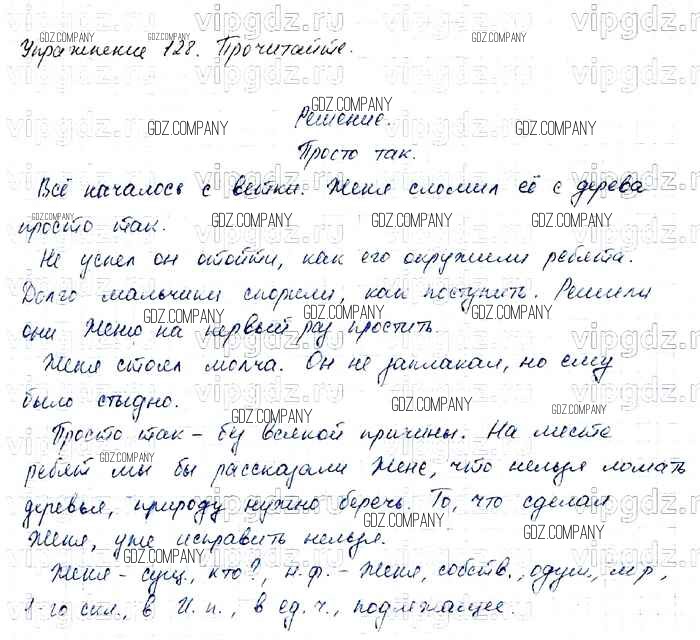 Упражнение 128. Прочитайте.
Решение.
Просто так.
Всё началось с ветки. Женя сломил её с дерева
просто так.
Не успел он отойти, как его окружили ребята.
Долго мальчики спорили, как поступить. Решили
они Женю на первый раз простить.
Женя стоял молча. Он не заплакал, но ему
было стыдно.
Просто так – без всякой причины. На месте
ребят мы бы рассказали Жене, что нельзя ломать
деревья, природу нужно беречь. То, что сделал
Женя, уже исправить нельзя.
Женя – сущ., кто?, н.ф. – Женя, собств., одуш., м.р.,
1-го скл., в И.п., в ед.ч., подлежащее.
vipgdz.ru
GDZ.COMPANY